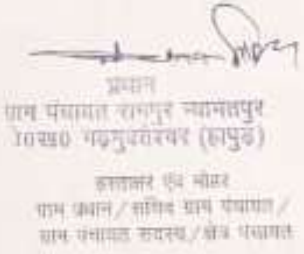 प्रधान
ग्राम पंचायत रामपुर न्यामतपुर
गढ़मुक्तेश्वर (हापुड़)
हस्ताक्षर एवं मोहर
ग्राम प्रधान / सचिव ग्राम पंचायत /
ग्राम पंचायत सदस्य / क्षेत्र पंचायत